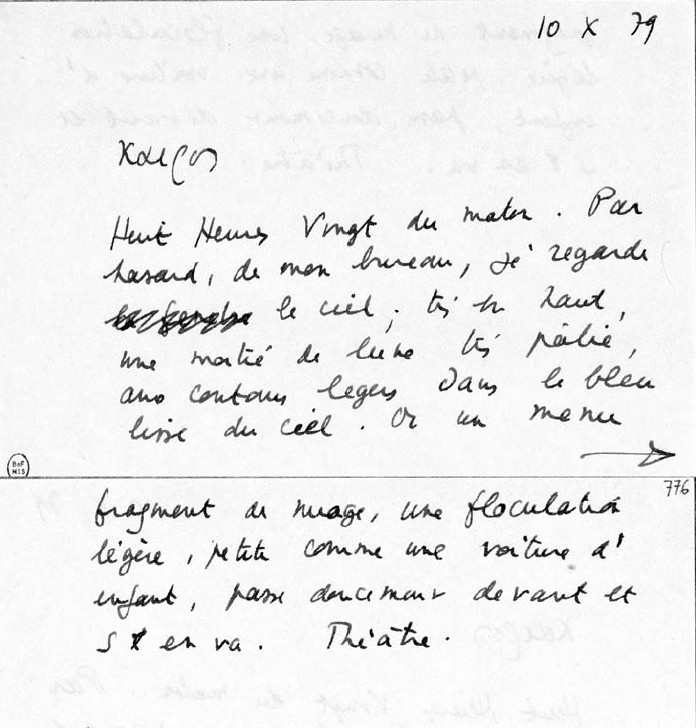 10 X 79
Καιρός
Huit Heures Vingt du matin. Par
hasard, de mon bureau, je regarde
le ciel ; très en haut,
une moitié de lune très pâlie,
aux contours légers dans le bleu
lisse du ciel. Or un menu
BnF
MSS
776
fragment de nuage, une floculation
légère, petite comme une voiture d'
enfant, passe doucement devant et
s'en va. Théâtre.